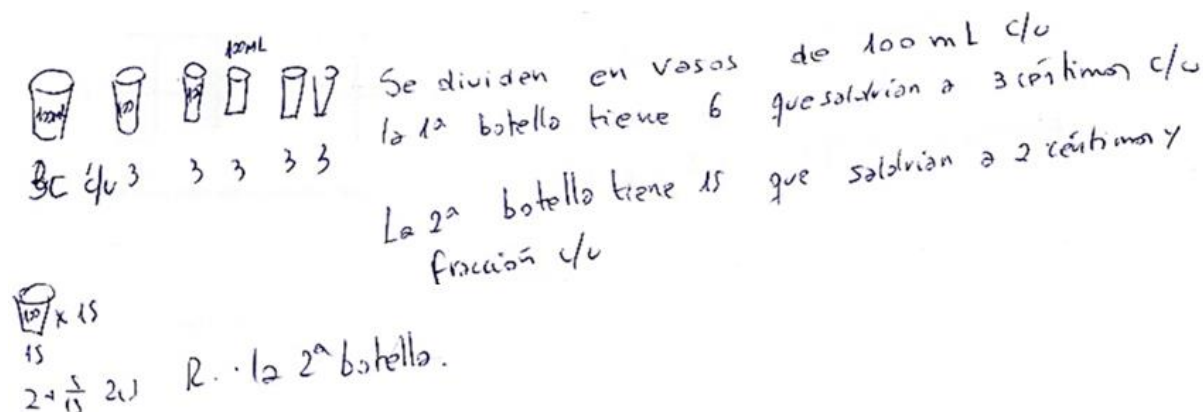 100mL
100mL 100 100
3C c/u 3 3 3 3 3
Se dividen en vasos de 100 mL c/u
la 1ª botella tiene 6 que saldrían a 3 céntimos c/u
La 2ª botella tiene 15 que saldrían a 2 céntimos y
fracción c/u
100 x 15
15
2+ 5/15
R. la 2ª botella.